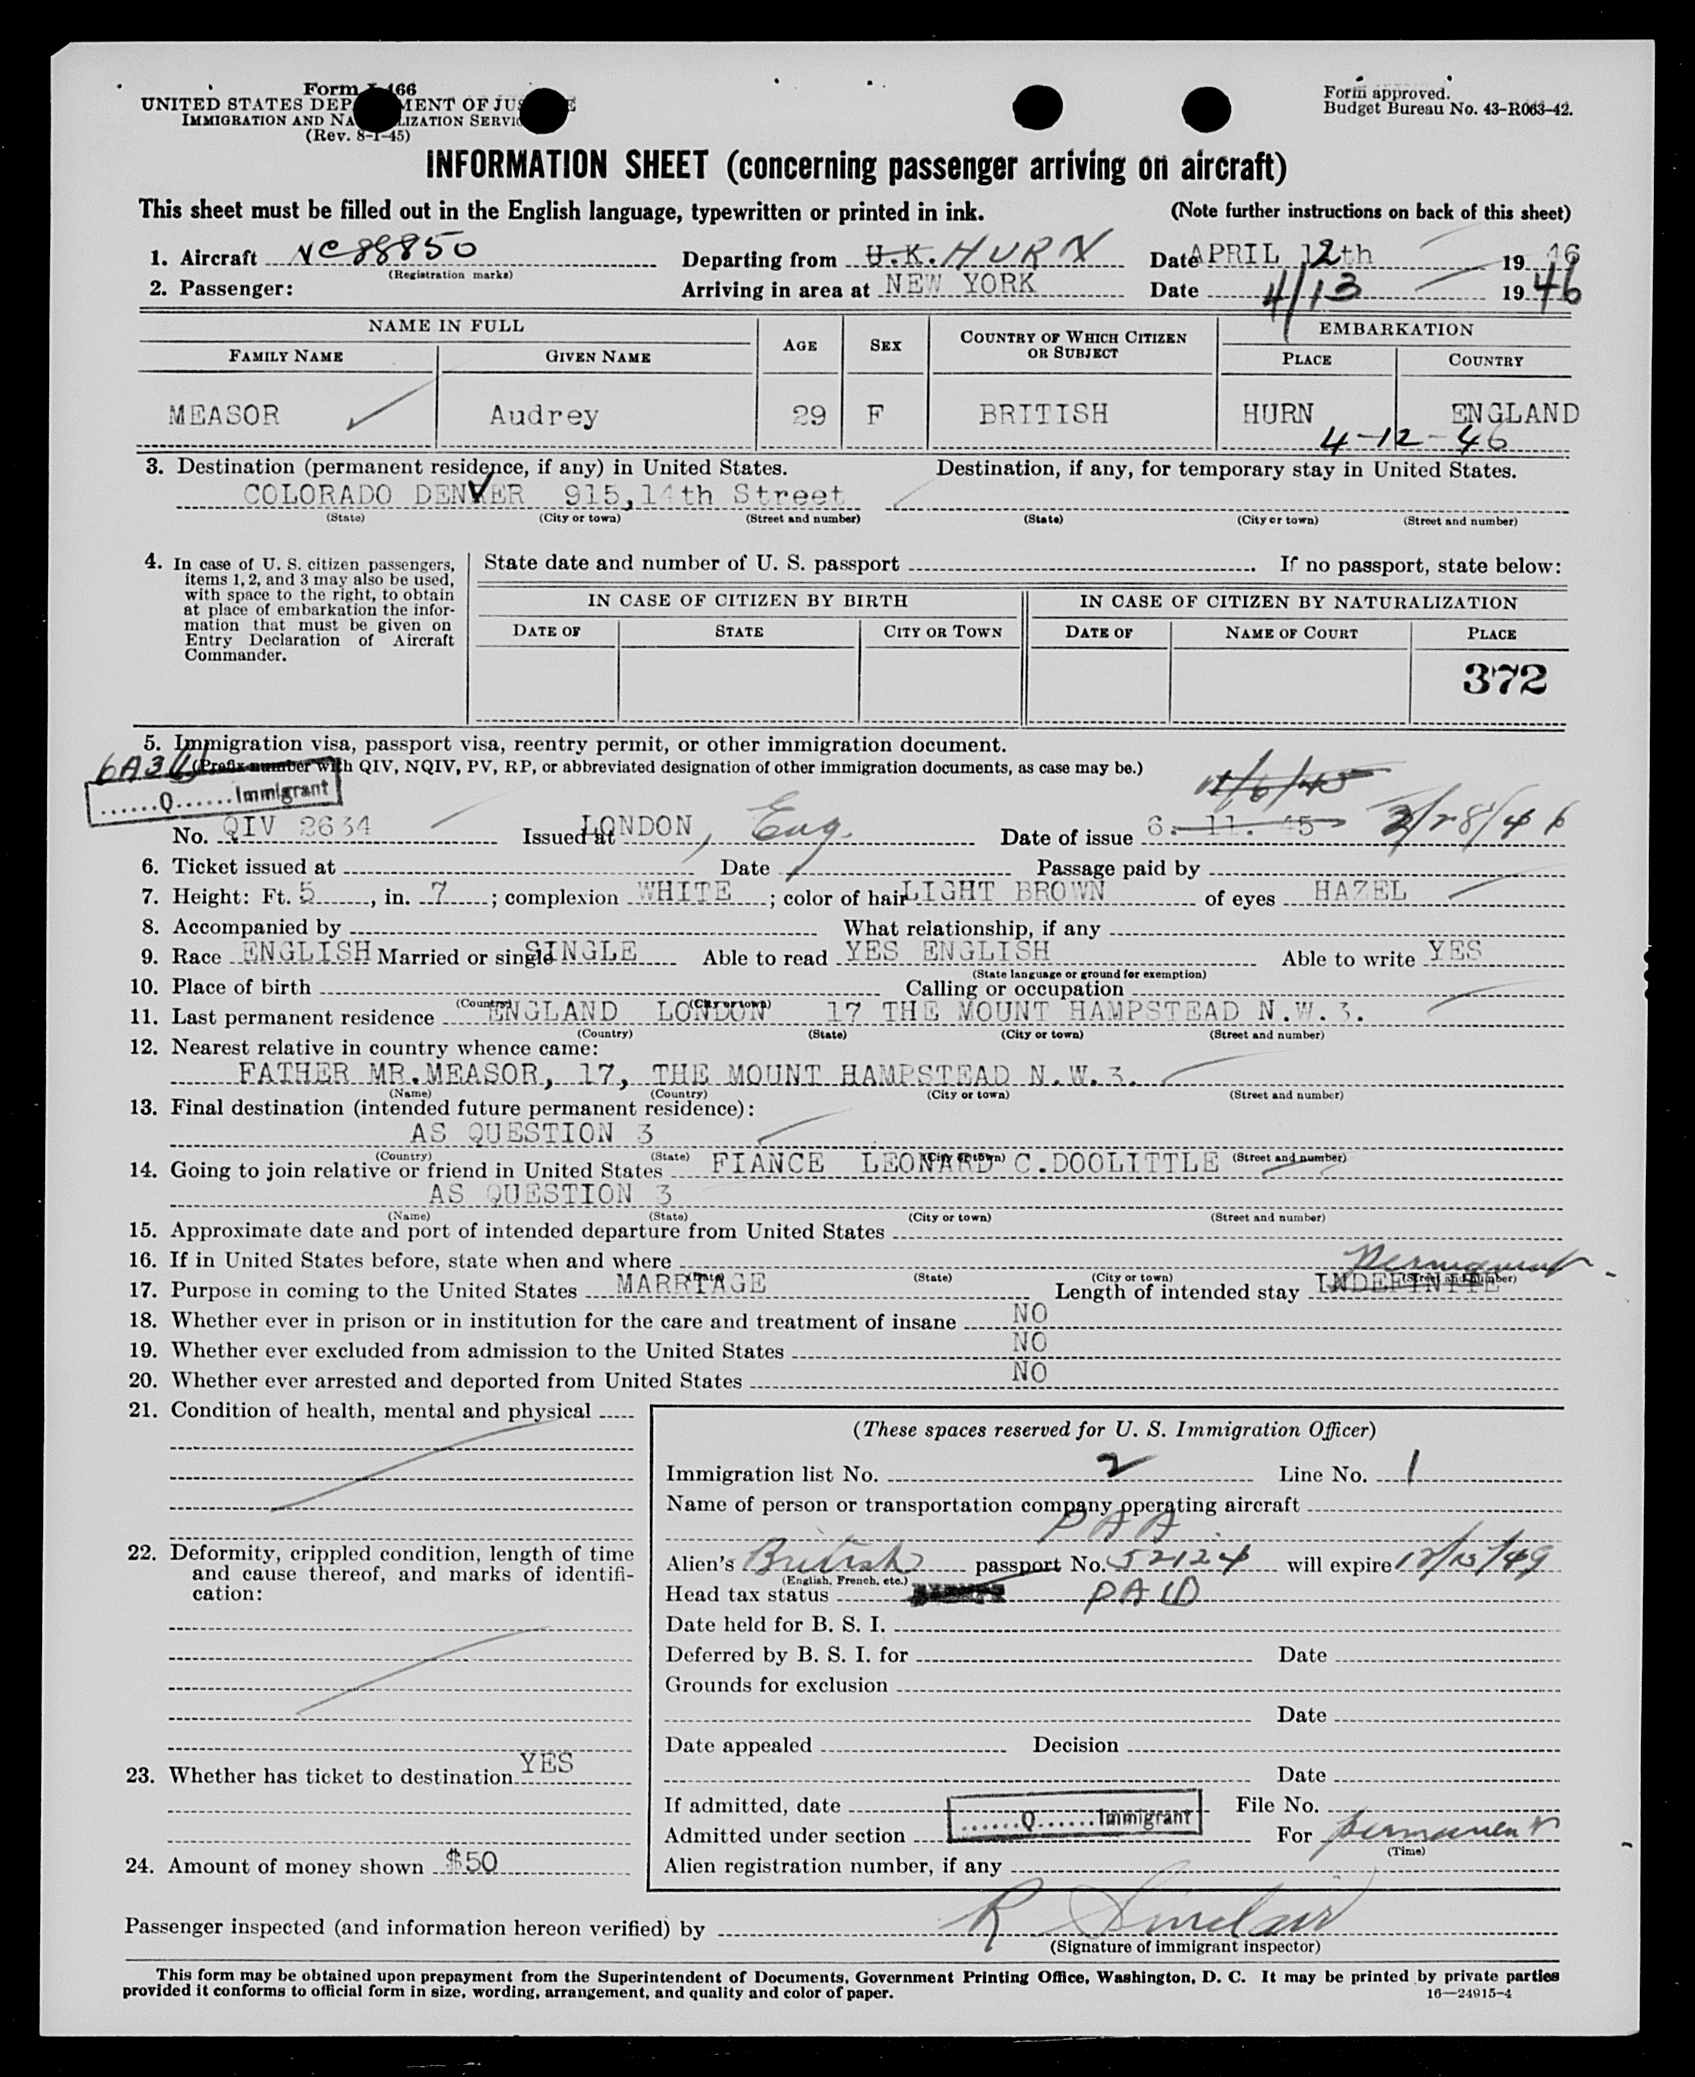 Form I-466
UNITED STATES DEPARTMENT OF JUSTICE
IMMIGRATION AND NATURALIZATION SERVICE
(Rev. 8-1-45)
Form approved.
Budget Bureau No. 43-R063-42.
INFORMATION SHEET (concerning passenger arriving on aircraft)
This sheet must be filled out in the English language, typewritten or printed in ink. (Note further instructions on back of this sheet)
1. Aircraft NC88850 Departing from U.K. HURN Date APRIL 12th 1946
(Registration marks)
2. Passenger: Arriving in area at NEW YORK Date 4/13 1946
NAME IN FULL AGE SEX COUNTRY OF WHICH CITIZEN OR SUBJECT EMBARKATION
FAMILY NAME GIVEN NAME PLACE COUNTRY
MEASOR Audrey 29 F BRITISH HURN ENGLAND
4-12-46
3. Destination (permanent residence, if any) in United States. Destination, if any, for temporary stay in United States.
COLORADO DENVER 915,14th Street
(State) (City or town) (Street and number) (State) (City or town) (Street and number)
4. In case of U. S. citizen passengers, items 1, 2, and 3 may also be used, with space to the right, to obtain at place of embarkation the information that must be given on Entry Declaration of Aircraft Commander.
State date and number of U. S. passport If no passport, state below:
IN CASE OF CITIZEN BY BIRTH IN CASE OF CITIZEN BY NATURALIZATION
DATE OF STATE CITY OR TOWN DATE OF NAME OF COURT PLACE
372
5. Immigration visa, passport visa, reentry permit, or other immigration document.
(Prefix number with QIV, NQIV, PV, RP, or abbreviated designation of other immigration documents, as case may be.)
......Q......Immigrant
11/6/45
No. QIV 2634 Issued at LONDON, Eng. Date of issue 6. 11. 45 3/28/46
6. Ticket issued at Date Passage paid by
7. Height: Ft. 5, in. 7; complexion WHITE; color of hair LIGHT BROWN of eyes HAZEL
8. Accompanied by What relationship, if any
9. Race ENGLISH Married or single SINGLE Able to read YES ENGLISH Able to write YES
(State language or ground for exemption)
10. Place of birth Calling or occupation
(Country) (City or town)
11. Last permanent residence ENGLAND LONDON 17 THE MOUNT HAMPSTEAD N.W.3.
(Country) (State) (City or town) (Street and number)
12. Nearest relative in country whence came:
FATHER MR.MEASOR, 17, THE MOUNT HAMPSTEAD N.W.3.
(Name) (Country) (City or town) (Street and number)
13. Final destination (intended future permanent residence):
AS QUESTION 3
(Country) (State) (City or town) (Street and number)
14. Going to join relative or friend in United States FIANCE LEONARD C.DOOLITTLE
AS QUESTION 3
(Name) (State) (City or town) (Street and number)
15. Approximate date and port of intended departure from United States
16. If in United States before, state when and where
(Date) (State) (City or town) (Street and number)
Permanent
17. Purpose in coming to the United States MARRIAGE Length of intended stay INDEFINITE
18. Whether ever in prison or in institution for the care and treatment of insane NO
19. Whether ever excluded from admission to the United States NO
20. Whether ever arrested and deported from United States NO
21. Condition of health, mental and physical
22. Deformity, crippled condition, length of time and cause thereof, and marks of identification:
23. Whether has ticket to destination YES
24. Amount of money shown $50
(These spaces reserved for U. S. Immigration Officer)
Immigration list No. 2 Line No. 1
Name of person or transportation company operating aircraft
PAA
Alien's British passport No. 52124 will expire 12/13/49
(English, French, etc.)
Head tax status PAID
Date held for B. S. I.
Deferred by B. S. I. for Date
Grounds for exclusion
Date
Date appealed Decision
Date
If admitted, date File No.
......Q......Immigrant
Admitted under section For permanent
(Time)
Alien registration number, if any
Passenger inspected (and information hereon verified) by R Sinclair
(Signature of immigrant inspector)
This form may be obtained upon prepayment from the Superintendent of Documents, Government Printing Office, Washington, D. C. It may be printed by private parties
provided it conforms to official form in size, wording, arrangement, and quality and color of paper. 16—24915-4